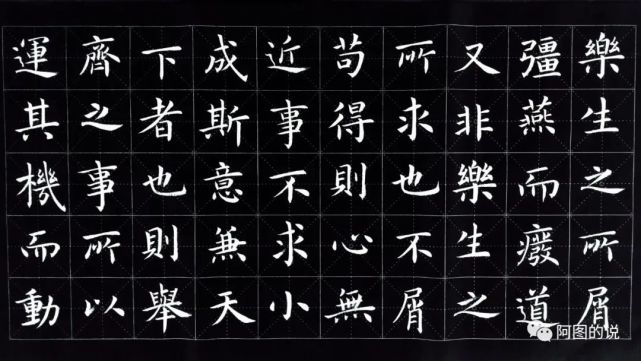 樂生之所屑
彊燕而廢道
又非樂生之
所求也不屑
苟得則心無
近事不求小
成斯意兼天
下者也則舉
齊之事所以
運其機而動
阿图的说